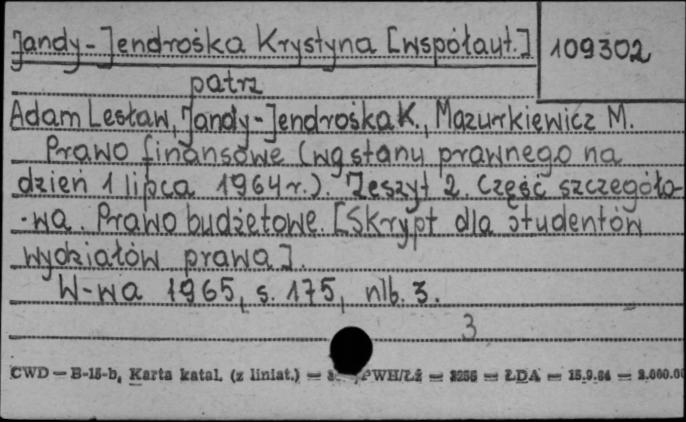 Jandy-Jendrośka Krystyna [współaut.]
109302
patrz
Adam Lesław, Jandy-Jendrośka K., Mazurkiewicz M.
Prawo finansowe (wg stanu prawnego na
dzień 1 lipca 1964 r.). Zeszyt 2. Część szczegóło-
-wa. Prawo budżetowe. [Skrypt dla studentów
wydziałów prawa].
W-wa 1965, s. 175, nlb. 3.
3
CWD — B-15-b, Karta katal. (z liniat.) — PWH/Łź — 3256 — ŁDA — 15.9.64 — 3.000.00